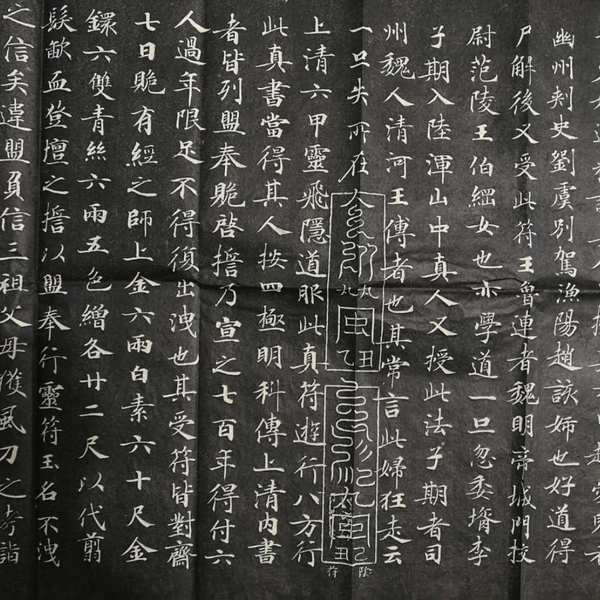 幽州刺史劉虞別駕漁陽趙該婦也好道得
尸解後又受此符王魯連者魏明帝城門校
尉范陵王伯綱女也亦學道一旦忽委壻李
子期入陸渾山中真人又授此法子期者司
州魏人清河王傳者也其常言此婦狂走云
一旦失所在
上清六甲靈飛隱道服此真符遊行八方行
此真書當得其人按四極明科傳上清內書
者皆列盟奉貺啓誓乃宣之七百年得付六
人過年限足不得復出洩也其受符皆對齋
七日貺有經之師上金六兩白素六十尺金
鐶六雙青絲六兩五色繒各廿二尺以代翦
髮歃血登壇之誓以盟奉行靈符玉名不洩
之信矣違盟負信三祖父母獲風刀之考詣